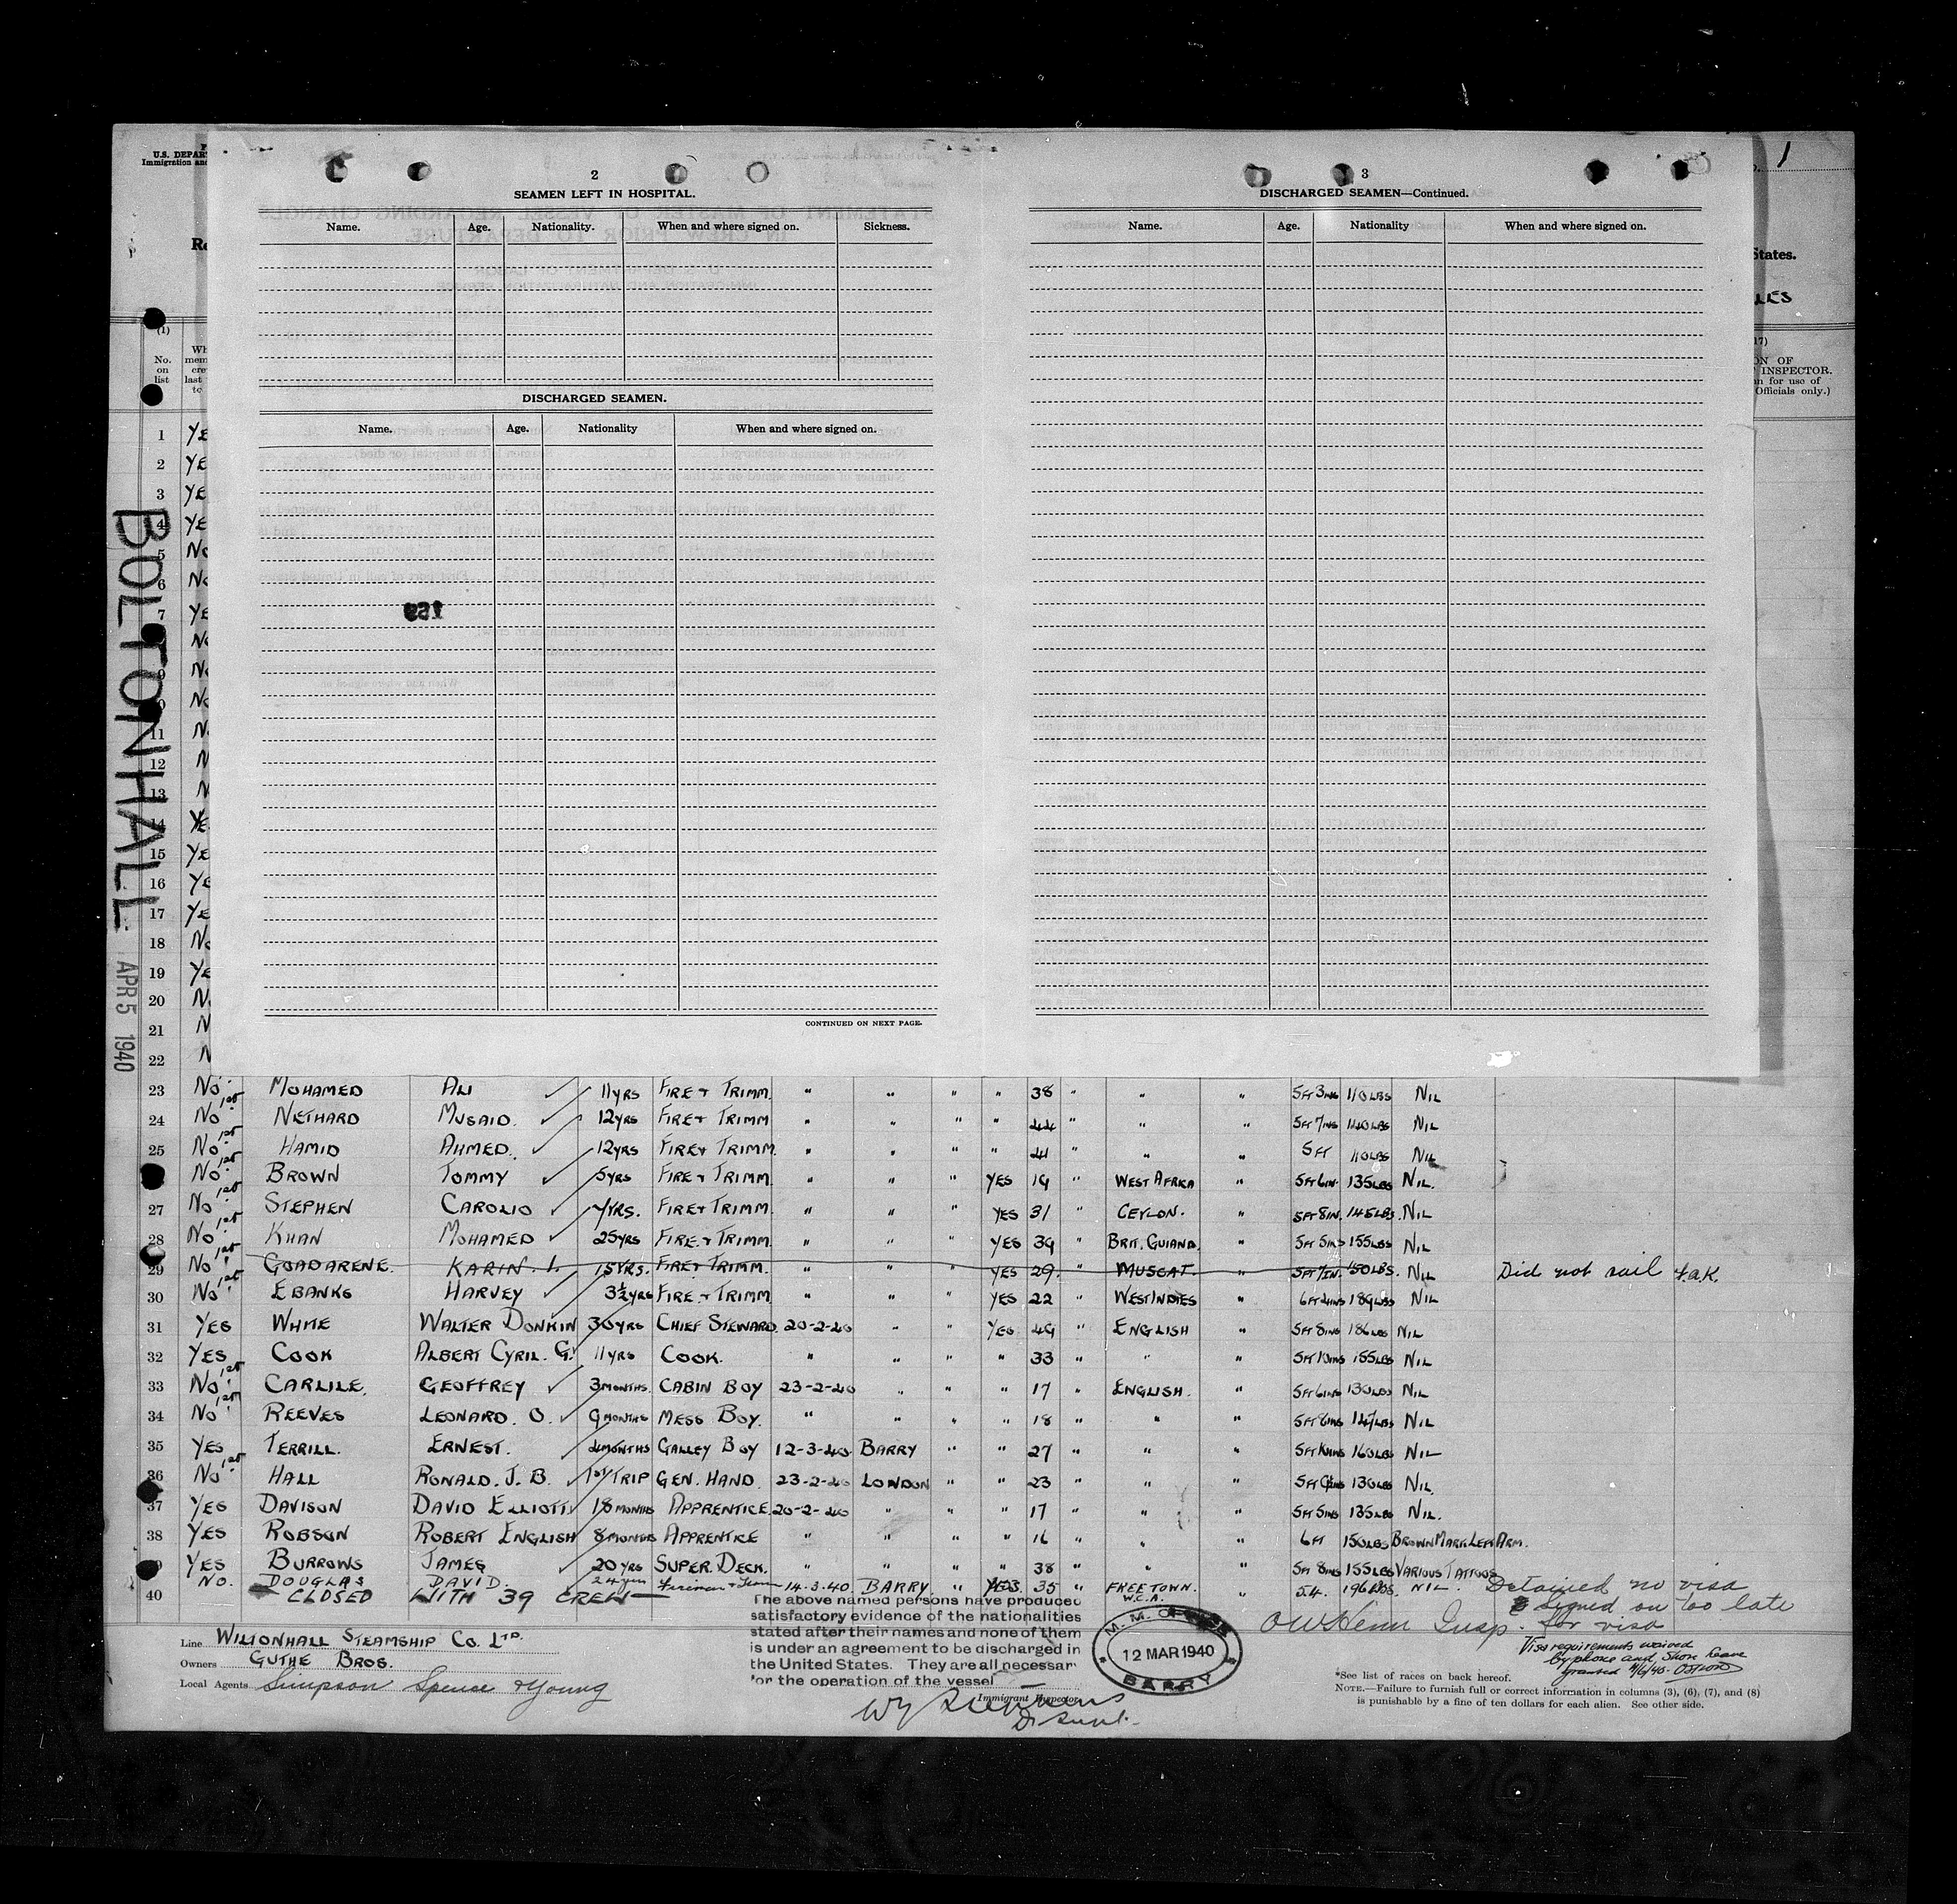 U.S. DEPAR
Immigration and
1
States.
2
SEAMEN LEFT IN HOSPITAL.
Name. Age. Nationality. When and where signed on. Sickness.
DISCHARGED SEAMEN.
Name. Age. Nationality When and where signed on.
CONTINUED ON NEXT PAGE.
3
DISCHARGED SEAMEN—Continued.
Name. Age. Nationality When and where signed on.
ON OF
INSPECTOR.
n for use of
Officials only.)
(1)
No.
on
list
Wh
mem
cre
last
to
BOLTONHALL
APR 5 1940
1 YE
2 YE
3 YE
4 YE
5 No
6 No
7 YE
No
9 No
No
11 N
12 N
13 N
14 YE
15 YE
16 YE
17 YE
18 No
19 YE
20 N
21 N
22 N
23 No MOHAMED ALI 11YRS FIRE + TRIMM. " " " " 38 " " " 5FT 3INS 110LBS NIL
24 No 1st NETHARD MUSAID. 12YRS FIRE + TRIMM " " " " 44 " " " 5FT 7INS 140LBS NIL
25 No 1st HAMID AHMED. 12YRS FIRE + TRIMM. " " " " 41 " " " 5FT 110LBS NIL
No 1st BROWN TOMMY 5YRS FIRE + TRIMM. " " " YES 19 " WEST AFRICA " 5FT 6IN. 135LBS NIL.
27 No 1st STEPHEN CAROLIO YRS. FIRE + TRIMM. " " " YES 31 " CEYLON. " 5FT 8IN. 145LBS. NIL
28 No 1st KHAN MOHAMED 25YRS FIRE. + TRIMM. " " " YES 39 " BRIT. GUIANA. " 5FT 5INS 155LBS NIL
29 No 1st GOADARENE. KARIN. I. 15YRS. FIRE + TRIMM. " " " YES 29. " MUSCAT. " 5FT 7IN. 150LBS. NIL Did not sail
30 No 1st EBANKS HARVEY 3½YRS FIRE. + TRIMM. " " " YES 22 " WEST INDIES " 6FT 189LBS NIL
31 YES WHITE WALTER DONKIN 30YRS CHIEF STEWARD. 20-2-40 " " YES 49 " ENGLISH " 5FT 8INS 186LBS NIL
32 YES COOK ALBERT CYRIL. G. 11YRS COOK. " " " " 33 " " " 5FT 10INS 155LBS NIL
33 No 1st CARLILE. GEOFFREY 3MONTHS. CABIN BOY 23-2-40 " " " 17 " ENGLISH. " 5FT 6INS 130LBS NIL
34 No 1st REEVES LEONARD. O. 9MONTHS MESS BOY. " " " " 18 " " " 5FT 8INS 147LBS NIL
35 YES TERRILL. ERNEST. 4MONTHS GALLEY BOY 12-3-40 BARRY " " 27 " " " 5FT 160LBS NIL
36 No 1st HALL RONALD. J. B. 1st TRIP GEN. HAND. 23-2-40 LONDON " " 23 " " " 5FT 130LBS NIL.
37 YES DAVISON DAVID ELLIOTT 18MONTHS APPRENTICE 20-2-40 " " " 17 " " " 5FT 5INS 135LBS NIL.
38 YES ROBSON ROBERT ENGLISH 8MONTHS APPRENTICE " " " " 16 " " " 6FT 150LBS BROWN MARK LEFT ARM.
YES BURROWS JAMES 20YRS SUPER. DECK. " " " " 38 " " " 5FT 8INS 155LBS VARIOUS TATTOOS
NO. DOUGLAS DAVID. 24yrs Fireman + Trimm 14.3.40. BARRY. " YES 35 " FREETOWN. W.C.A. " 5.4. 196LBS. NIL. Detained no visa
40 CLOSED WITH 39 CREW
signed on too late
for visa
Visa requirements waived
by phone and shore leave
granted
The above named persons have produced
satisfactory evidence of the nationalities
stated after their names and none of them
is under an agreement to be discharged in
the United States. They are all necessar
for the operation of the vessel
Immigrant Inspector
M. M. OFFICE
12 MAR 1940
BARRY
Insp.
Line WILTONHALL STEAMSHIP CO. LTD.
Owners GUTHE BROS.
Local Agents Simpson Spence & Young
*See list of races on back hereof.
NOTE.—Failure to furnish full or correct information in columns (3), (6), (7), and (8)
is punishable by a fine of ten dollars for each alien. See other side.